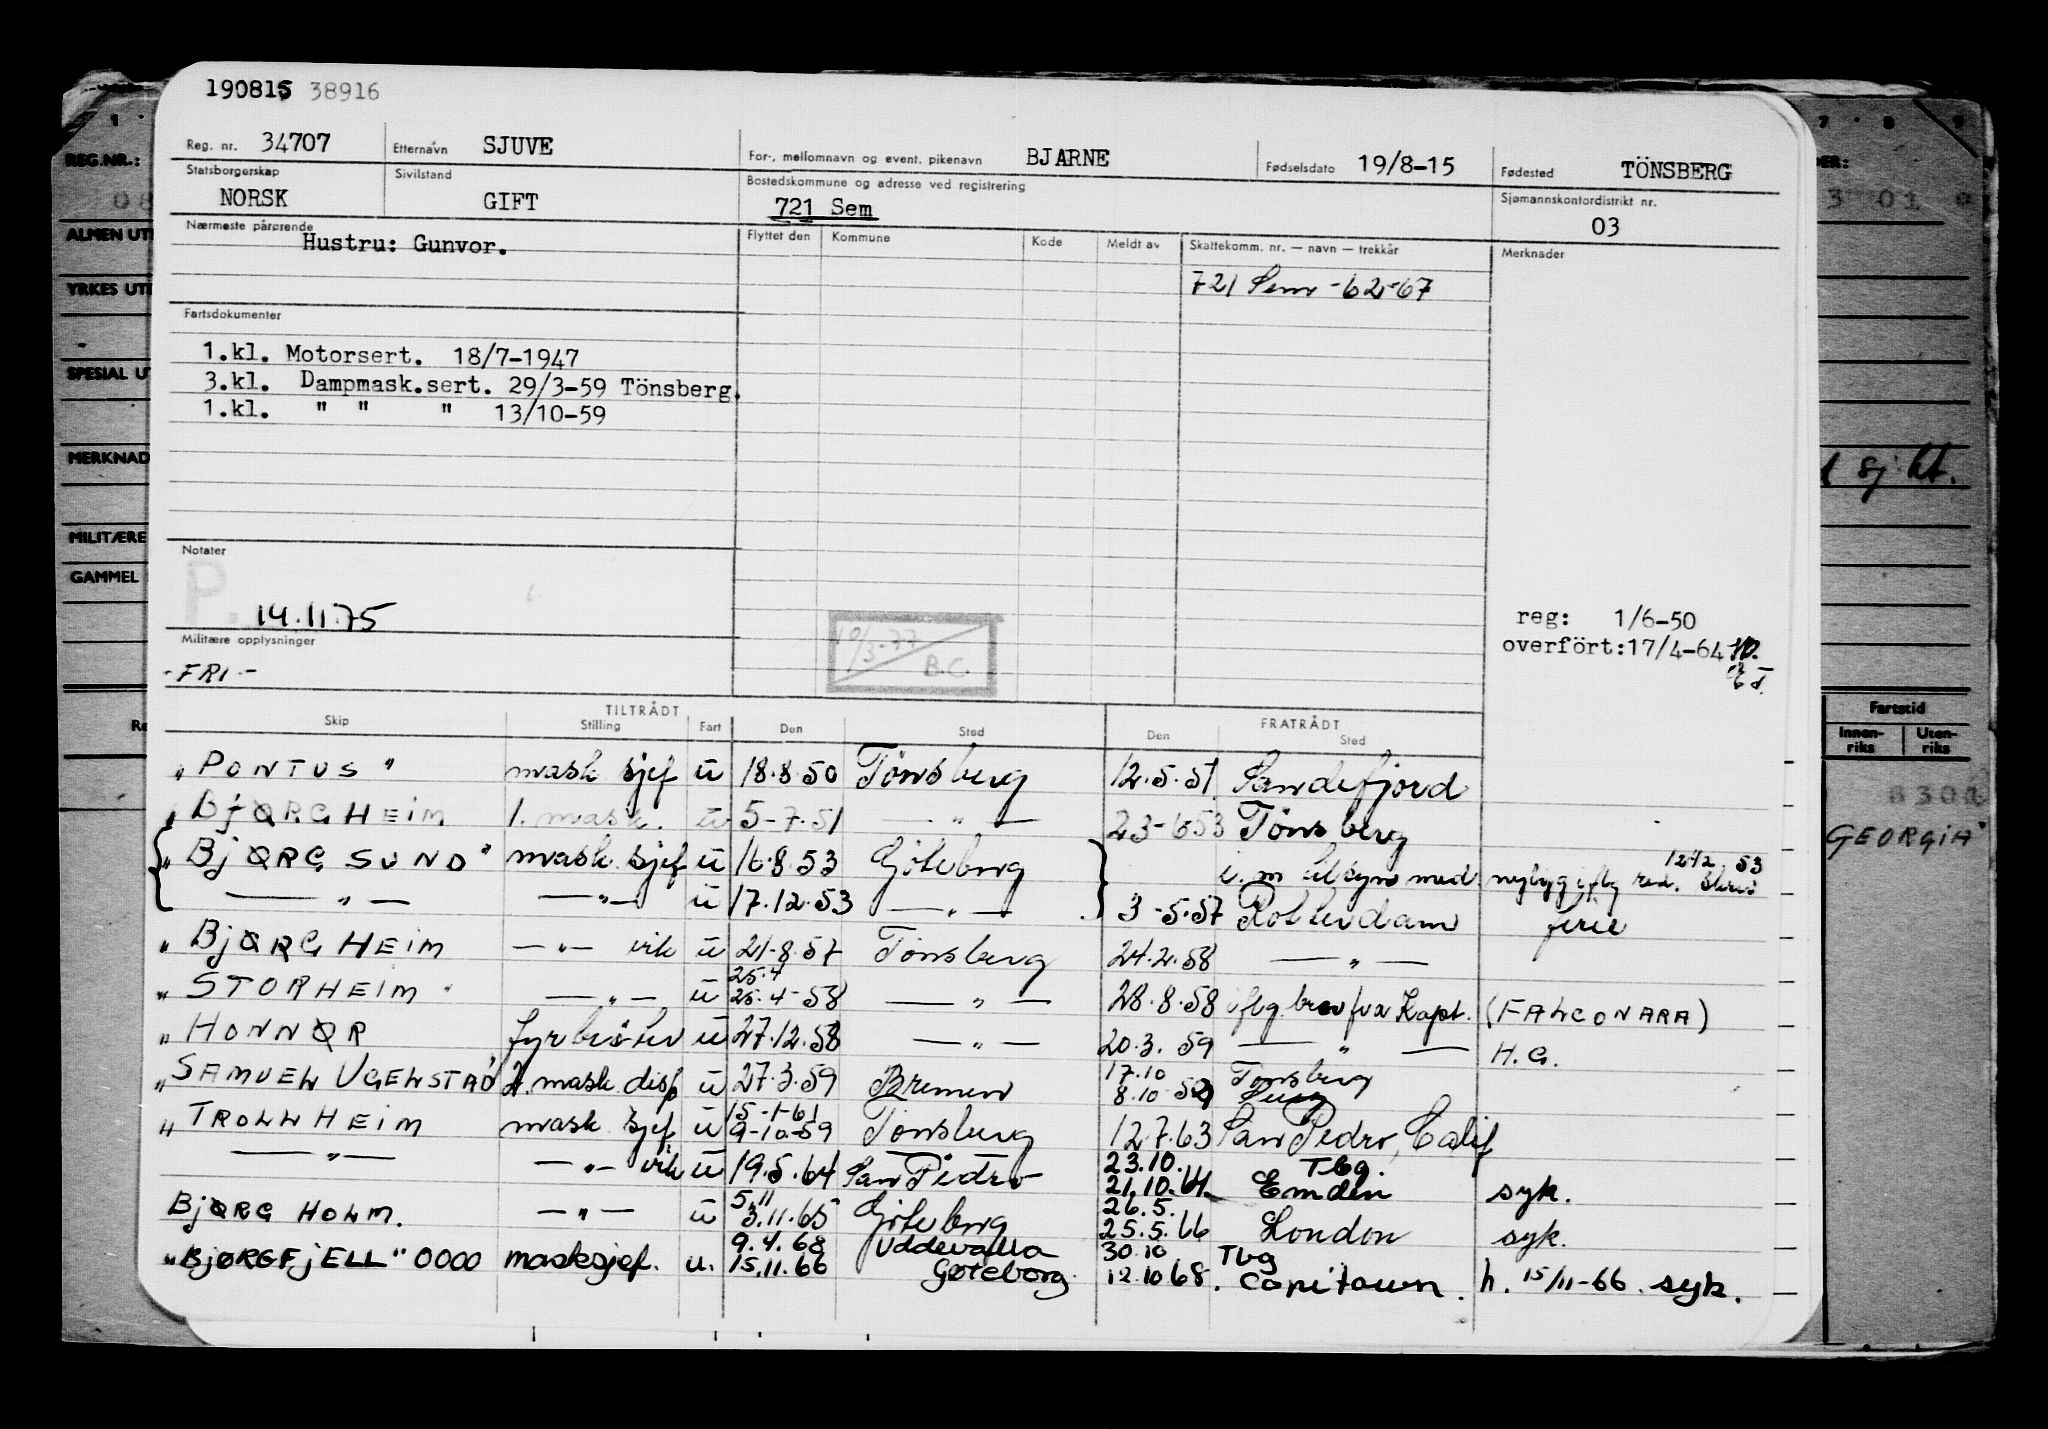 190815 38916
Reg. nr. 34707 Etternavn SJUVE For-, mellomnavn og event. pikenavn BJARNE Fødselsdato 19/8-15 Fødested TÖNSBERG
Statsborgerskap NORSK Sivilstand GIFT Bostedskommune og adresse ved registrering 721 Sem Sjømannskontordistrikt nr. 03
Nærmeste pårørende Hustru: Gunvor. Flyttet den Kommune Kode Meldt av Skattekomm. nr. — navn — trekkår Merknader
721 Sem -62-67
Fartsdokumenter
1.kl. Motorsert. 18/7-1947
3.kl. Dampmask.sert. 29/3-59 Tönsberg.
1.kl. " " " 13/10-59
Notater
P.
14.11.75
10/3-77 B.C.
reg: 1/6-50
overfört:17/4-64
Militære opplysninger
-FRI-
TILTRÅDT FRATRÅDT
Skip Stilling Fart Den Sted Den Sted
"PONTUS" mask sjef u 18.8.50 Tönsberg 12.5.51 Sandefjord
"BjØRGHEIM 1. mask. u 5-7.51 — " — 23-6 53 Tönsberg
"BjØRG SUND" mask. sjef u 16.8.53 Göteborg i. m tilsyn med nybygg iflg red. 12/12 53
— " — — " — u 17.12.53 — " — 3-5.57 Rotterdam ferie
"BjØRG HEIM — " — vik u 21-8.57 Tönsberg 24.2.58 — " —
"STORHEIM" — " — u 25.4 25.4-58 — " — 28.8.58 iflg. brev fra Kapt. (FALCONARA)
"HONNØR fyrbøter u 27.12.58 — " — 20.3.59 — " — H.G.
"SAMUEL UGELSTAD 2. mask disp u 27.3.59 Bremen 17.10 8.10-59 Tønsberg
"TROLLHEIM mask sjef u 15-1-61 9-10-59 Tønsberg 12.7.63 San Pedro, Calif
— " — — " — vik u 19.5.64 San Pedro 23.10. 21.10.64 Tbg. Emden syk.
BjØRG HOLM. — " — u 5.11 3.11.65 Göteborg 26.5. 25.5.66 London syk.
"BjØRGFjELL" 0000 masksjef. u. 9.4.68 15.11.66 Uddevalla Gøteborg. 30.10 12.10 68. Tbg Capetown. h. 15/11-66. syk.
REG.NR.:
ALMEN UT
YRKES UT
SPESIAL UT
MERKNAD
MILITÆRE
GAMMEL
7 8 9
3 01
sj.
Fartstid
Innenriks Utenriks
GEORGIA"